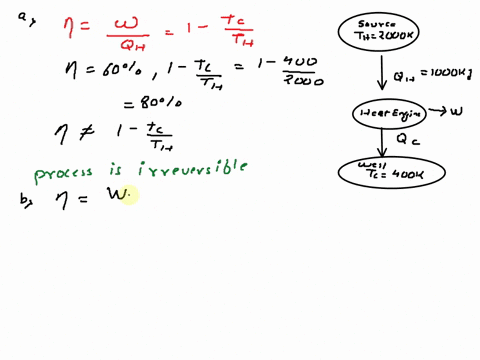 a, η = W / Q_H = 1 - Tc / T_H
η = 60%, 1 - Tc / T_H = 1 - 400 / 2000
= 80%
η ≠ 1 - Tc / T_H
process is irreversible
b, η = W
Source
T_H = 2000K
Q_H = 1000kJ
Heat Engine → W
Q_C
Tc = 400K